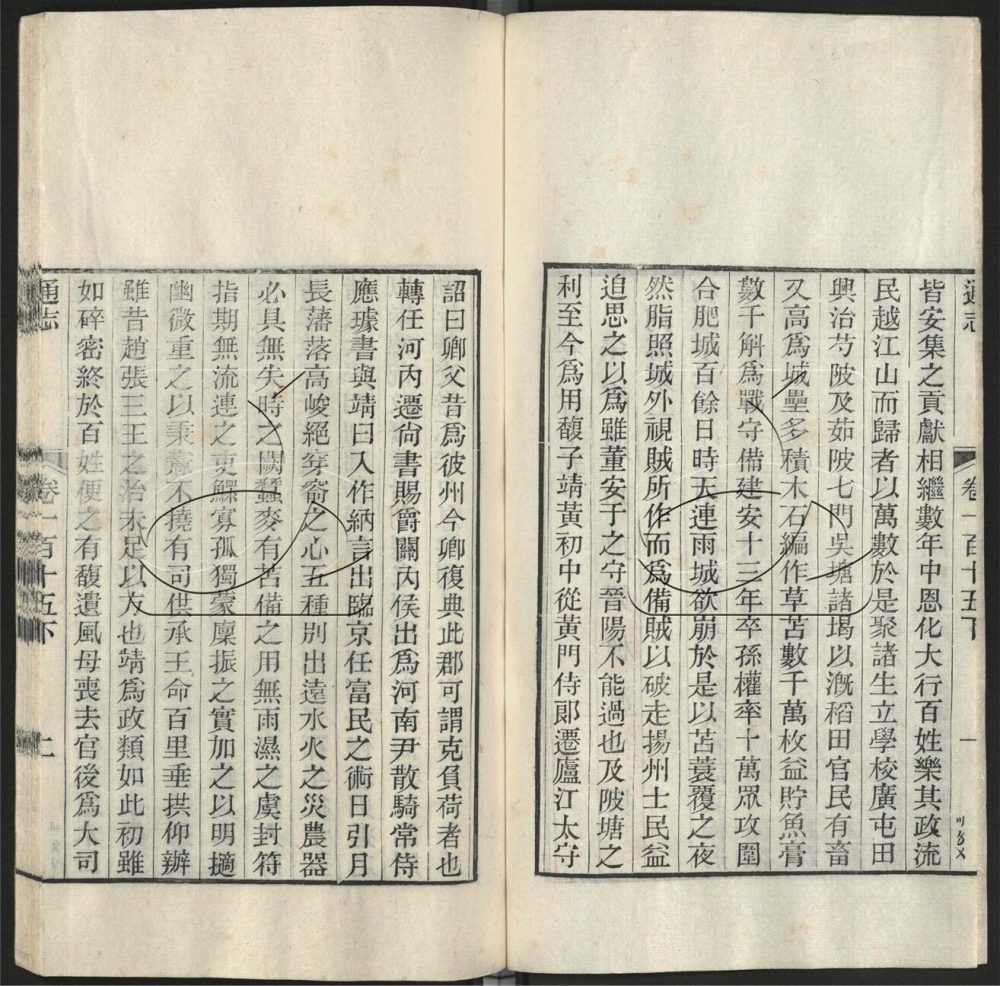 通志
卷一百十五下
一
皆安集之貢獻相繼數年中恩化大行百姓樂其政流
民越江山而歸者以萬數於是聚諸生立學校廣屯田
興治芍陂及茹陂七門吳塘諸堨以溉稻田官民有畜
又高爲城壘多積木石編作草苫數千萬枚益貯魚膏
數千斛爲戰守備建安十三年卒孫權率十萬眾攻圍
合肥城百餘日時天連雨城欲崩於是以苫蓑覆之夜
然脂照城外視賊所作而爲備賊以破走揚州士民益
追思之以爲雖董安于之守晉陽不能過也及陂塘之
利至今爲用馥子靖黃初中從黃門侍郎遷廬江太守
詔曰卿父昔爲彼州今卿復典此郡可謂克負荷者也
轉任河內遷尚書賜爵關內侯出爲河南尹散騎常侍
應璩書與靖曰入作納言出臨京任富民之術日引月
長藩落高峻絕穿窬之心五種別出遠水火之災農器
必具無失時之闕蠶麥有苫備之用無雨濕之虞封符
指期無流連之吏鰥寡孤獨蒙廩振之實加之以明擿
幽微重之以秉憲不撓有司供承王命百里垂拱仰辦
雖昔趙張三王之治未足以方也靖爲政類如此初雖
如碎密終於百姓便之有馥遺風母喪去官後爲大司
通志
卷一百十五下